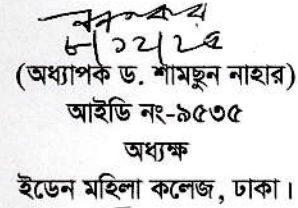 ৮/১২/২৫
(অধ্যাপক ড. শামছুন নাহার)
আইডি নং-৯৫৩৫
অধ্যক্ষ
ইডেন মহিলা কলেজ, ঢাকা।